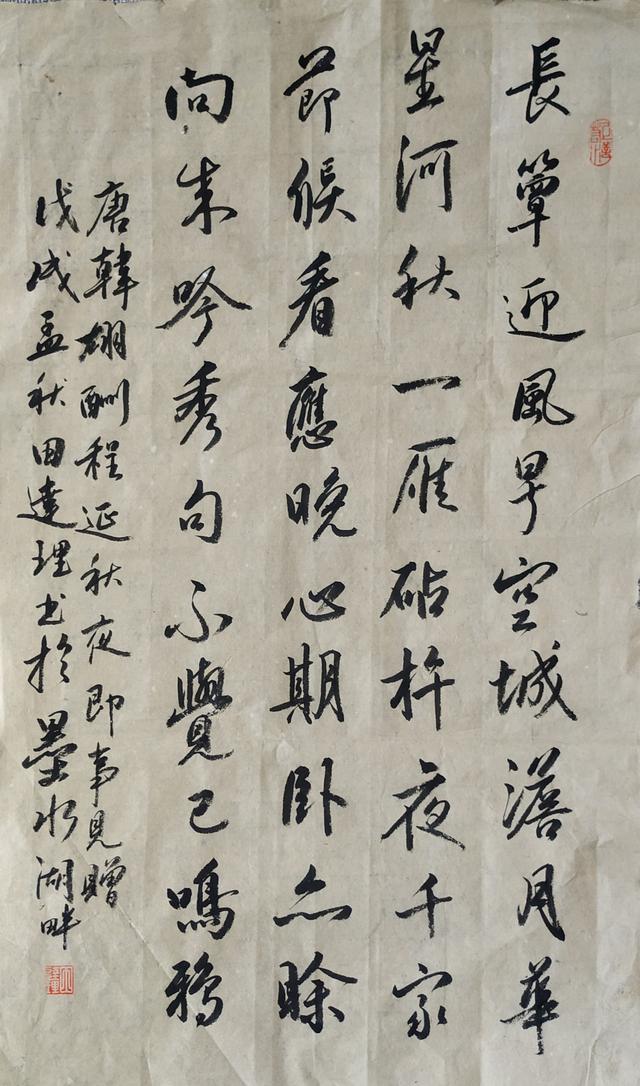 長簟迎風早空城澹月華
星河秋一雁砧杵夜千家
節候看應晚心期卧亦賒
向来吟秀句不覺已鳴鴉
唐韓翃酬程延秋夜即事見贈
戊戌孟秋田達理书於墨水湖畔